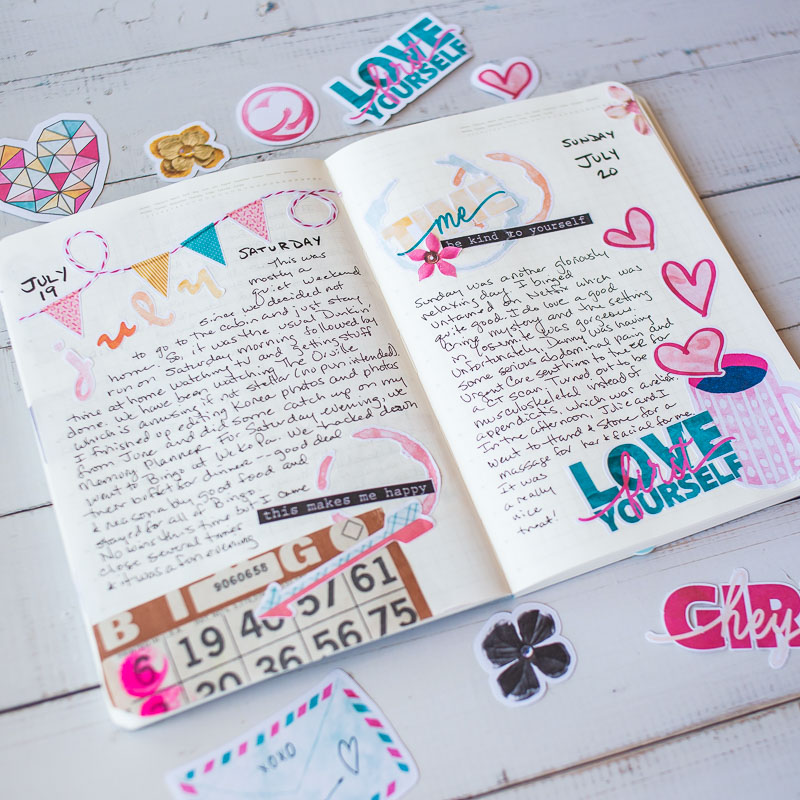 LOVE
first
YOURSELF
SUNDAY
JULY
20
me
be kind to yourself
JULY
19
SATURDAY
july
This was
mostly a
quiet weekend
since we did not
to go to the cabin and just stay
home. So, it was the usual Dunkin'
run on Saturday morning followed by
time at home watching TV and getting stuff
done. We have been watching The Orville
which is amusing if not stellar (no pun intended).
I finished up editing Korea photos and photos
from June and did some catch up on my
Memory Planner. For Saturday evening, we
went to Bingo at We Ko Pa. We tacked down
their buffet for dinner - good deal
& reasonably good food and
stayed for all of Bingo.
No wins this time but I came
close several times
& it was a fun evening
this makes me happy
BINGO
9060658
6 19 40 57 61
20 36 56 75
Sunday was another gloriously
relaxing day. I binged
Untamed on Netflix which was
quite good. I do love a good
mystery and the setting
in Yosemite was gorgeous.
Unfortunately, Danny was having
some serious abdominal pain and
Urgent Care sent him to the ER for
a CT scan. Turned out to be
musculoskeletal instead of
appendicitis, which was a relief.
In the afternoon, Julie and I
went to Hand & Stone for a
massage for her & facial for me.
It was
a really
nice
treat!
LOVE
first
YOURSELF
hey
XOXO